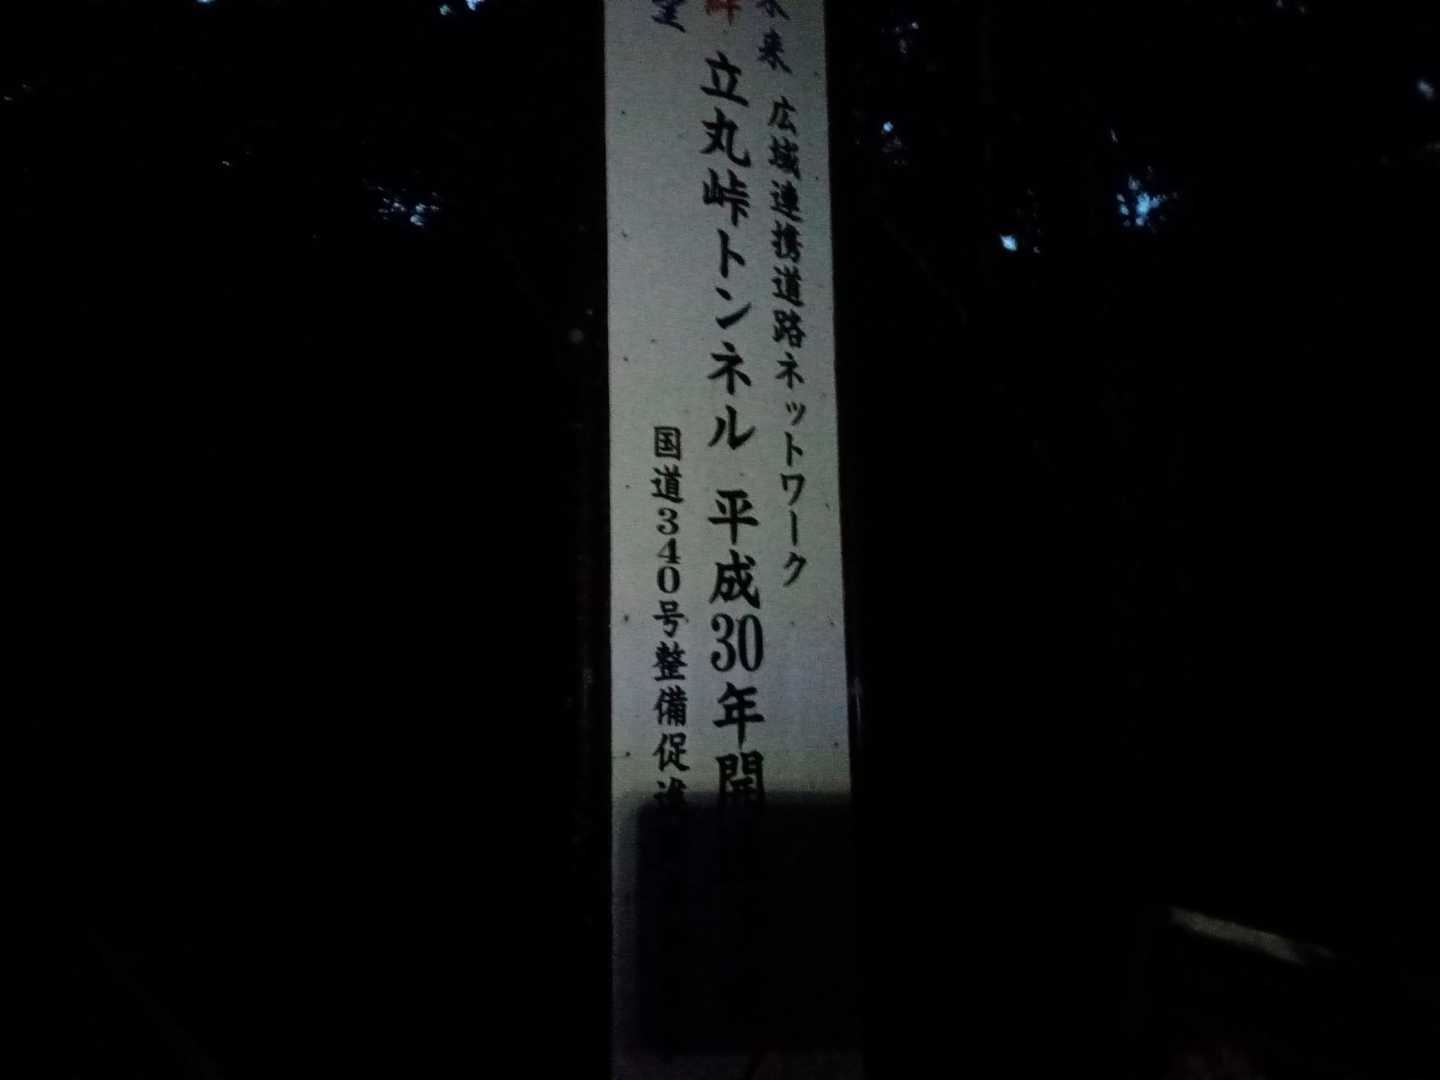 未来 広域連携道路ネットワーク
立丸峠トンネル 平成30年開
国道340号整備促進